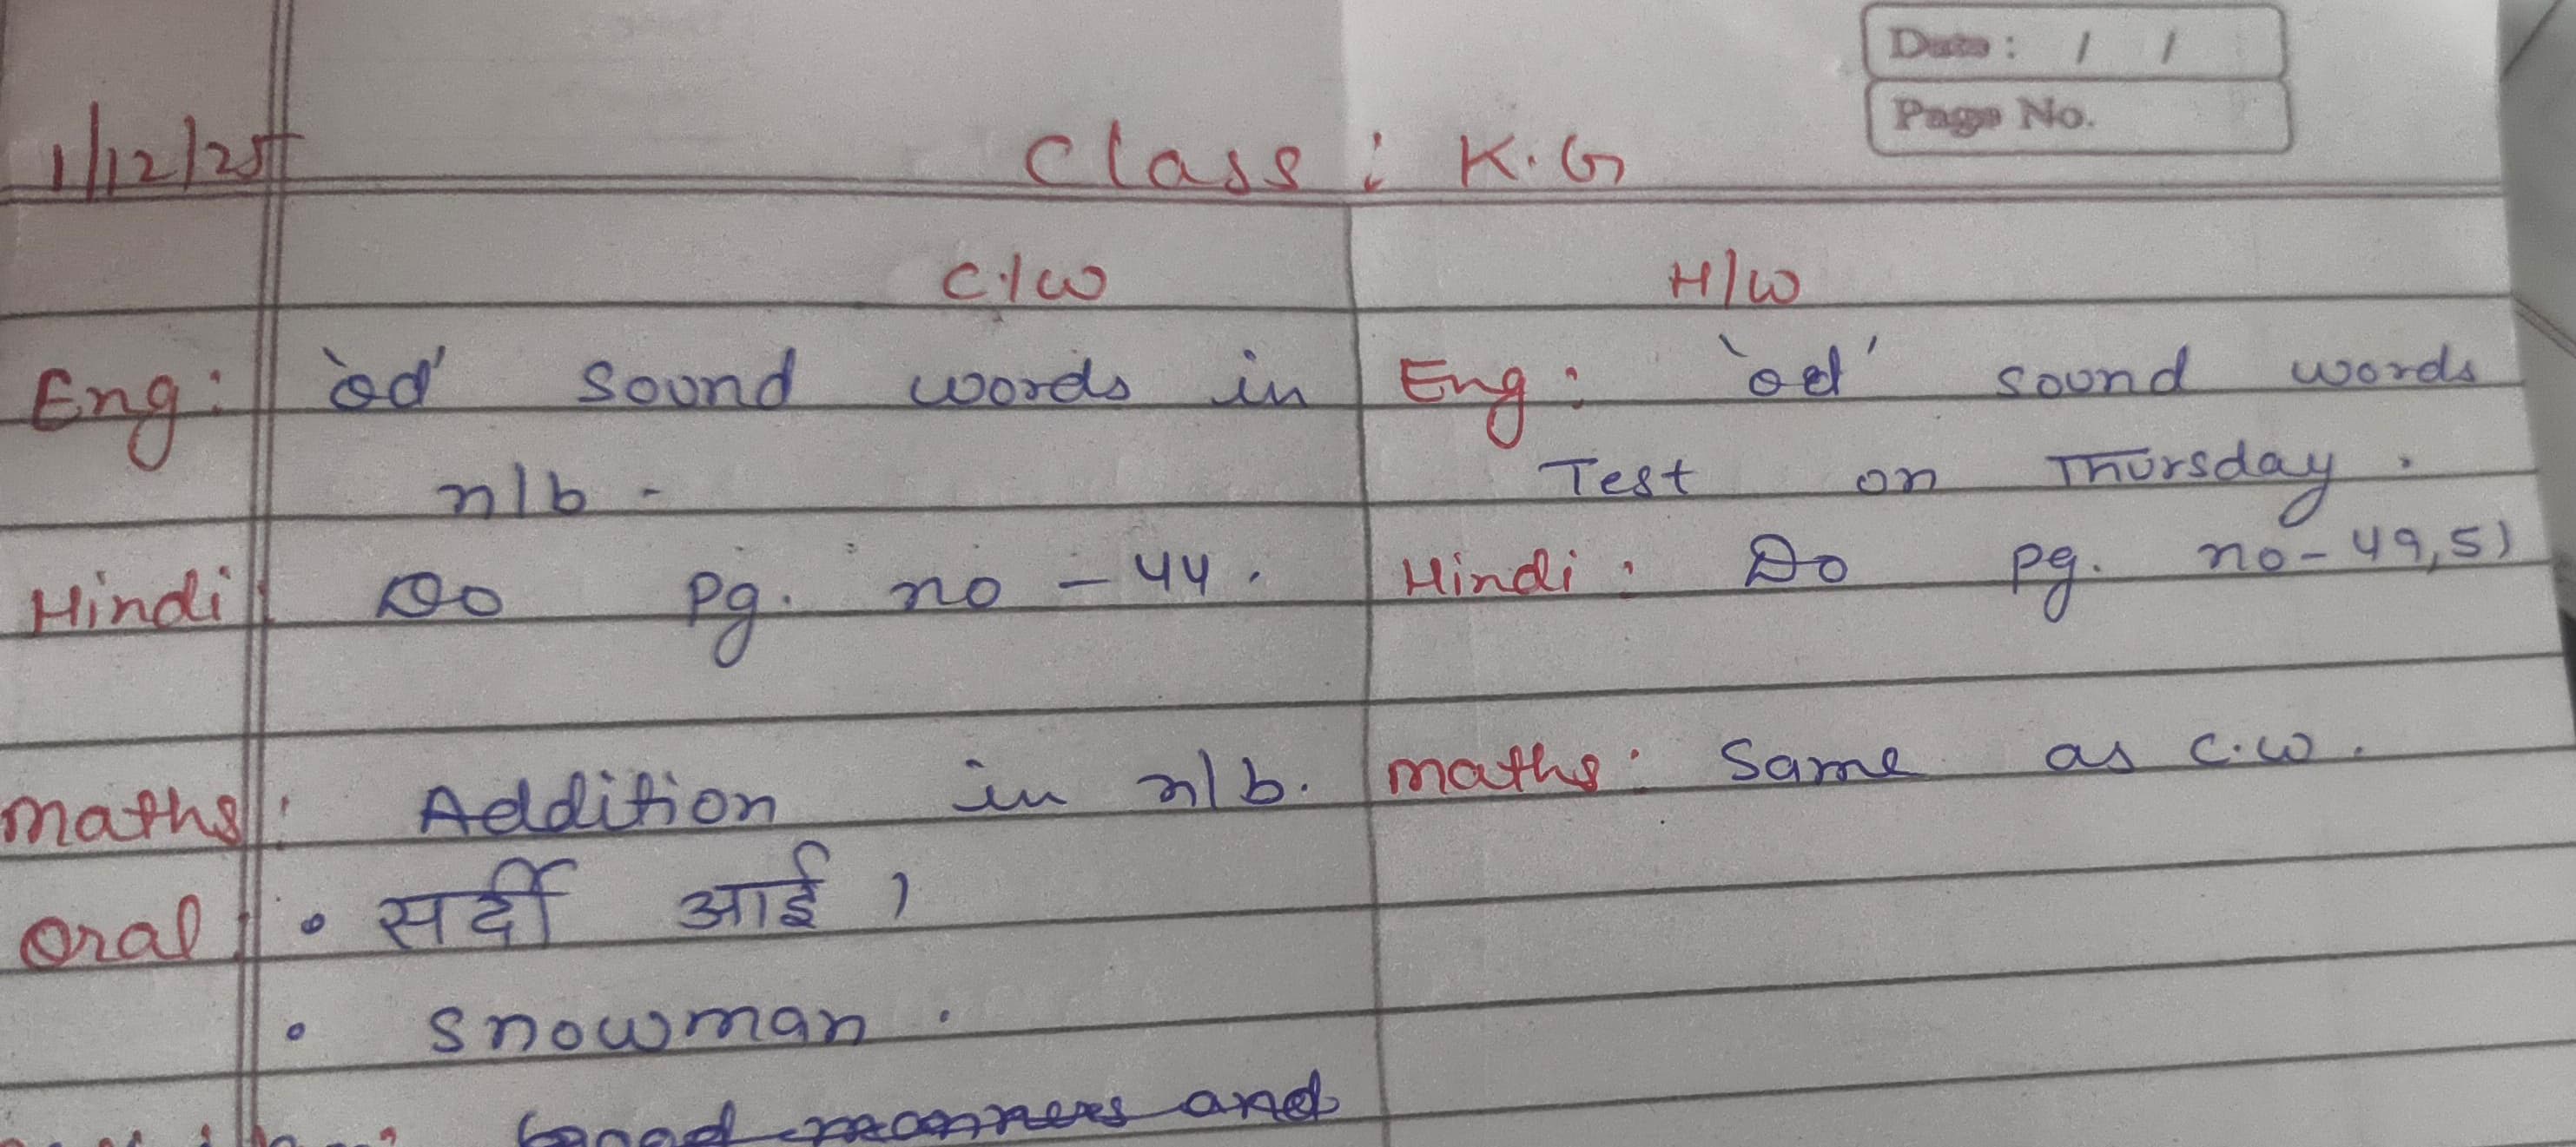 Date : / /
Page No.
1/12/25 Class : K.G
C/W H/W
Eng: 'od' sound words in Eng: 'od' sound words
n/b - Test on Thursday.
Hindi: Do Pg. no - 44. Hindi: Do pg. no - 49, 51
maths: Addition in n/b. maths: Same as c.w.
Oral: • सर्दी आई ।
• Snowman.
Good manners and